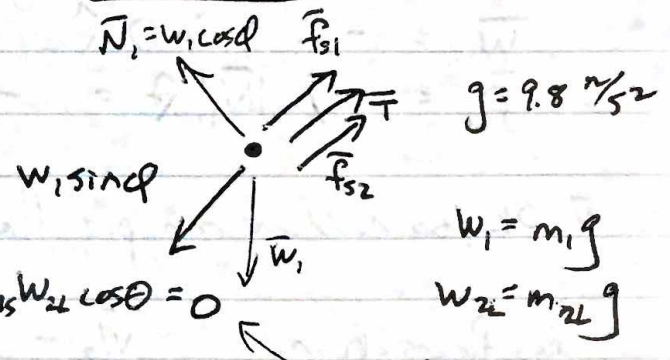 N̄₁ = W₁ cosφ f̄s1
T̄
g = 9.8 m/s²
f̄s2
W₁ sinφ
W̄₁
W₁ = m₁g
W2L cosθ = 0
W2L = m2L g